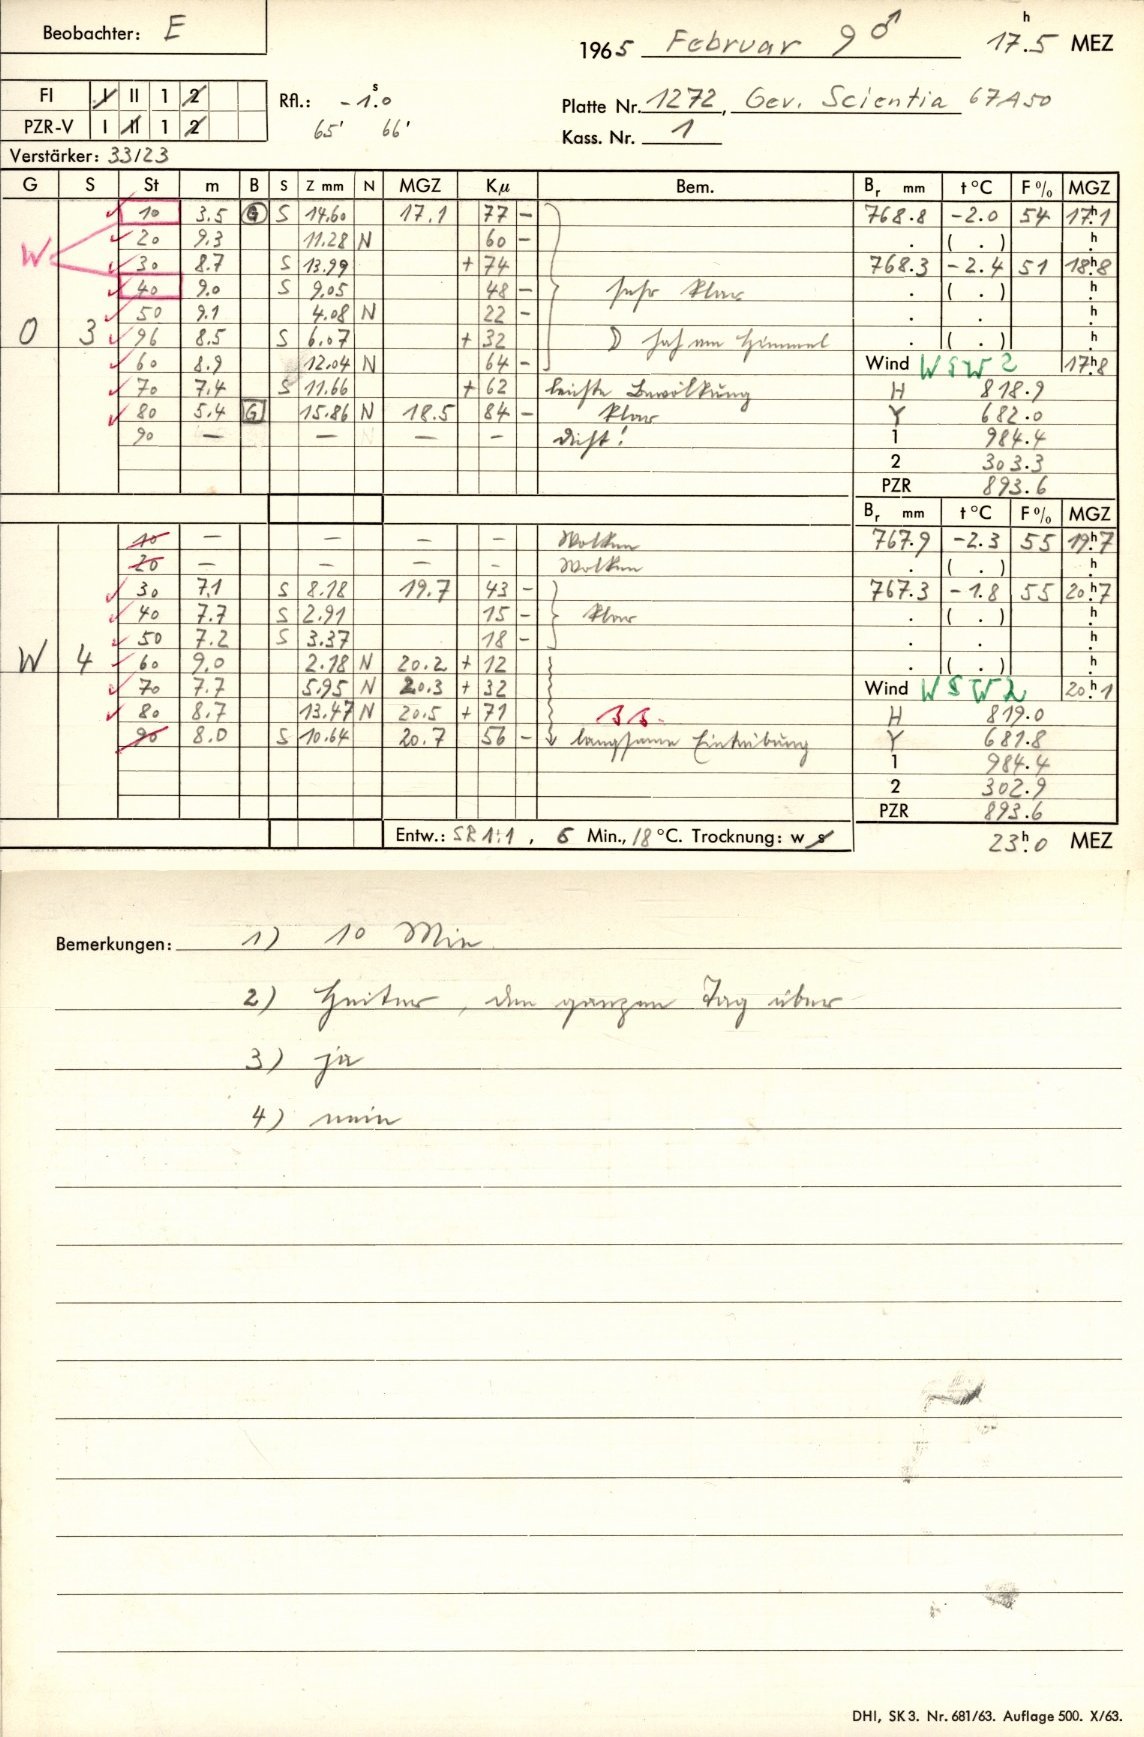 Beobachter: E
1965 Februar 9 ♂ 17h.5 MEZ
FI I II 1 2
Rfl.: -1s.0
Platte Nr. 1272, Gev. Scientia 67A50
PZR-V I II 1 2
65' 66'
Kass. Nr. 1
Verstärker: 33/23
G S St m B S Z mm N MGZ Kμ Bem. Br mm t °C F % MGZ
10 3.5 G S 14.60 17.1 77 – 768.8 -2.0 54 17h1
W 20 9.3 11.28 N 60 – . ( . ) h
30 8.7 S 13.99 + 74 768.3 -2.4 51 18h8
40 9.0 S 9.05 48 – sehr klar . ( . ) h
50 9.1 4.08 N 22 – . . h
O 3 96 8.5 S 6.07 + 32 ☽ hoch am Himmel . ( . ) h
60 8.9 12.04 N 64 – Wind WSW 2 17h8
70 7.4 S 11.66 + 62 leichte Bewölkung H 818.9
80 5.4 G 15.86 N 18.5 84 – klar Y 682.0
90 — — N — – dicht! 1 984.4
2 303.3
PZR 893.6
Br mm t °C F % MGZ
10 — — — – Wolken 767.9 -2.3 55 19h7
20 — — — – Wolken . ( . ) h
30 7.1 S 8.18 19.7 43 – 767.3 -1.8 55 20h7
40 7.7 S 2.91 15 – klar . ( . ) h
50 7.2 S 3.37 18 – . . h
W 4 60 9.0 2.18 N 20.2 + 12 . ( . ) h
70 7.7 5.95 N 20.3 + 32 Wind WSW 2 20h1
80 8.7 13.47 N 20.5 + 71 H 819.0
90 8.0 S 10.64 20.7 56 – langsame Eintrübung Y 681.8
1 984.4
2 302.9
PZR 893.6
Entw.: SR 1:1, 6 Min., 18 °C. Trocknung: w s
23h.0 MEZ
Bemerkungen: 1) 10 Min
2) Heiter, den ganzen Tag über
3) ja
4) nein
DHI, SK 3. Nr. 681/63. Auflage 500. X/63.